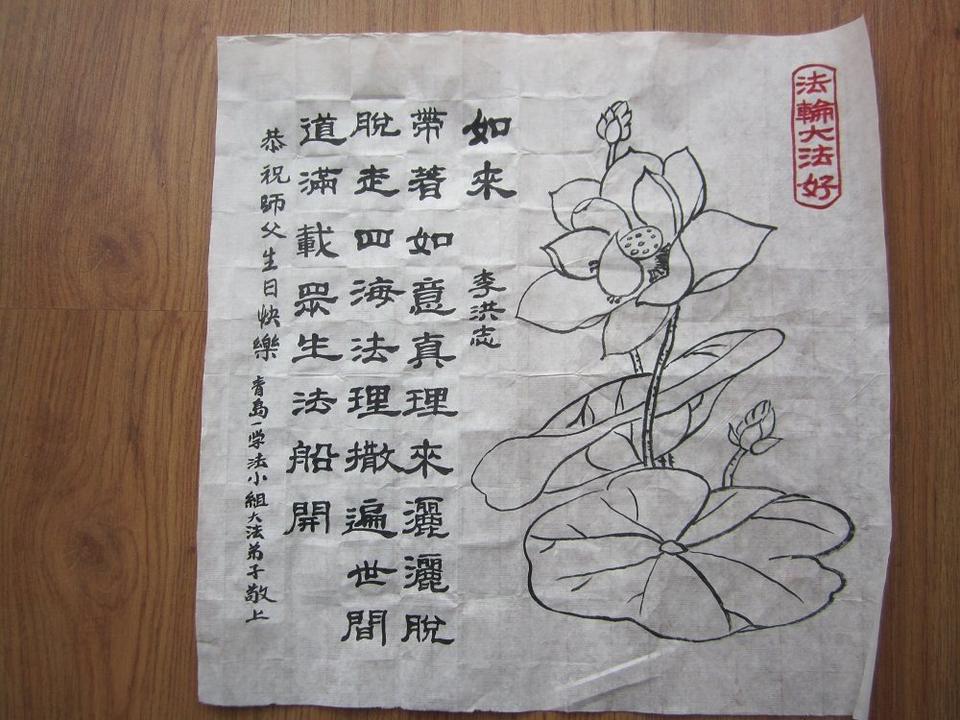 法輪大法好
如来
李洪志
帶著如意真理來灑灑脫
脫走四海法理撒遍世間
道滿載眾生法船開
恭祝師父生日快樂
青島一学法小組大法弟子敬上